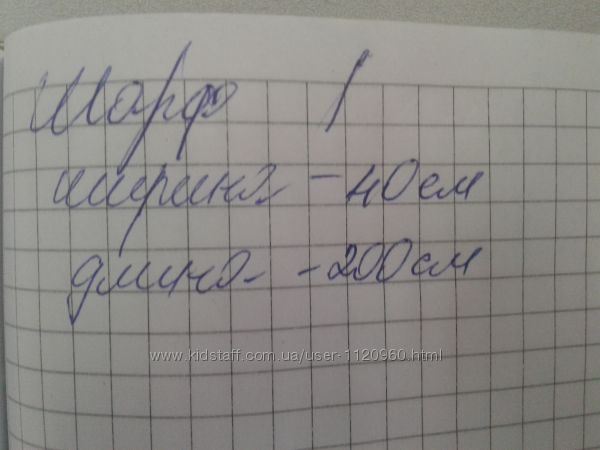 Шарф 1
ширина - 40см
длина - 200см
www.kidstaff.com.ua/user-1120960.html